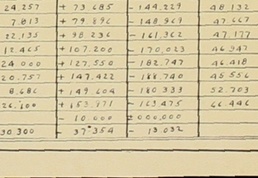 24.257 + 73.685 - 144.229 48.132
7.813 + 79.896 - 148.969 47.667
22.135 + 98.236 - 161.362 47.177
12.465 + 107.200 - 170.023 46.947
24.000 + 127.550 - 182.747 46.418
20.757 + 147.422 - 188.740 45.556
8.686 + 149.604 - 180.333 52.703
26.100 + 153.871 - 163.475 66.446
- 10.000 ± 000.000
30.300 - 37.354 - 13.032